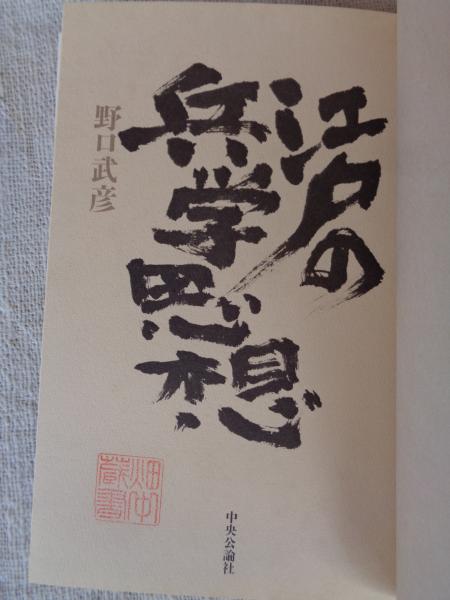 江戸の
兵学思想
野口武彦
畑中
蔵書
中央公論社